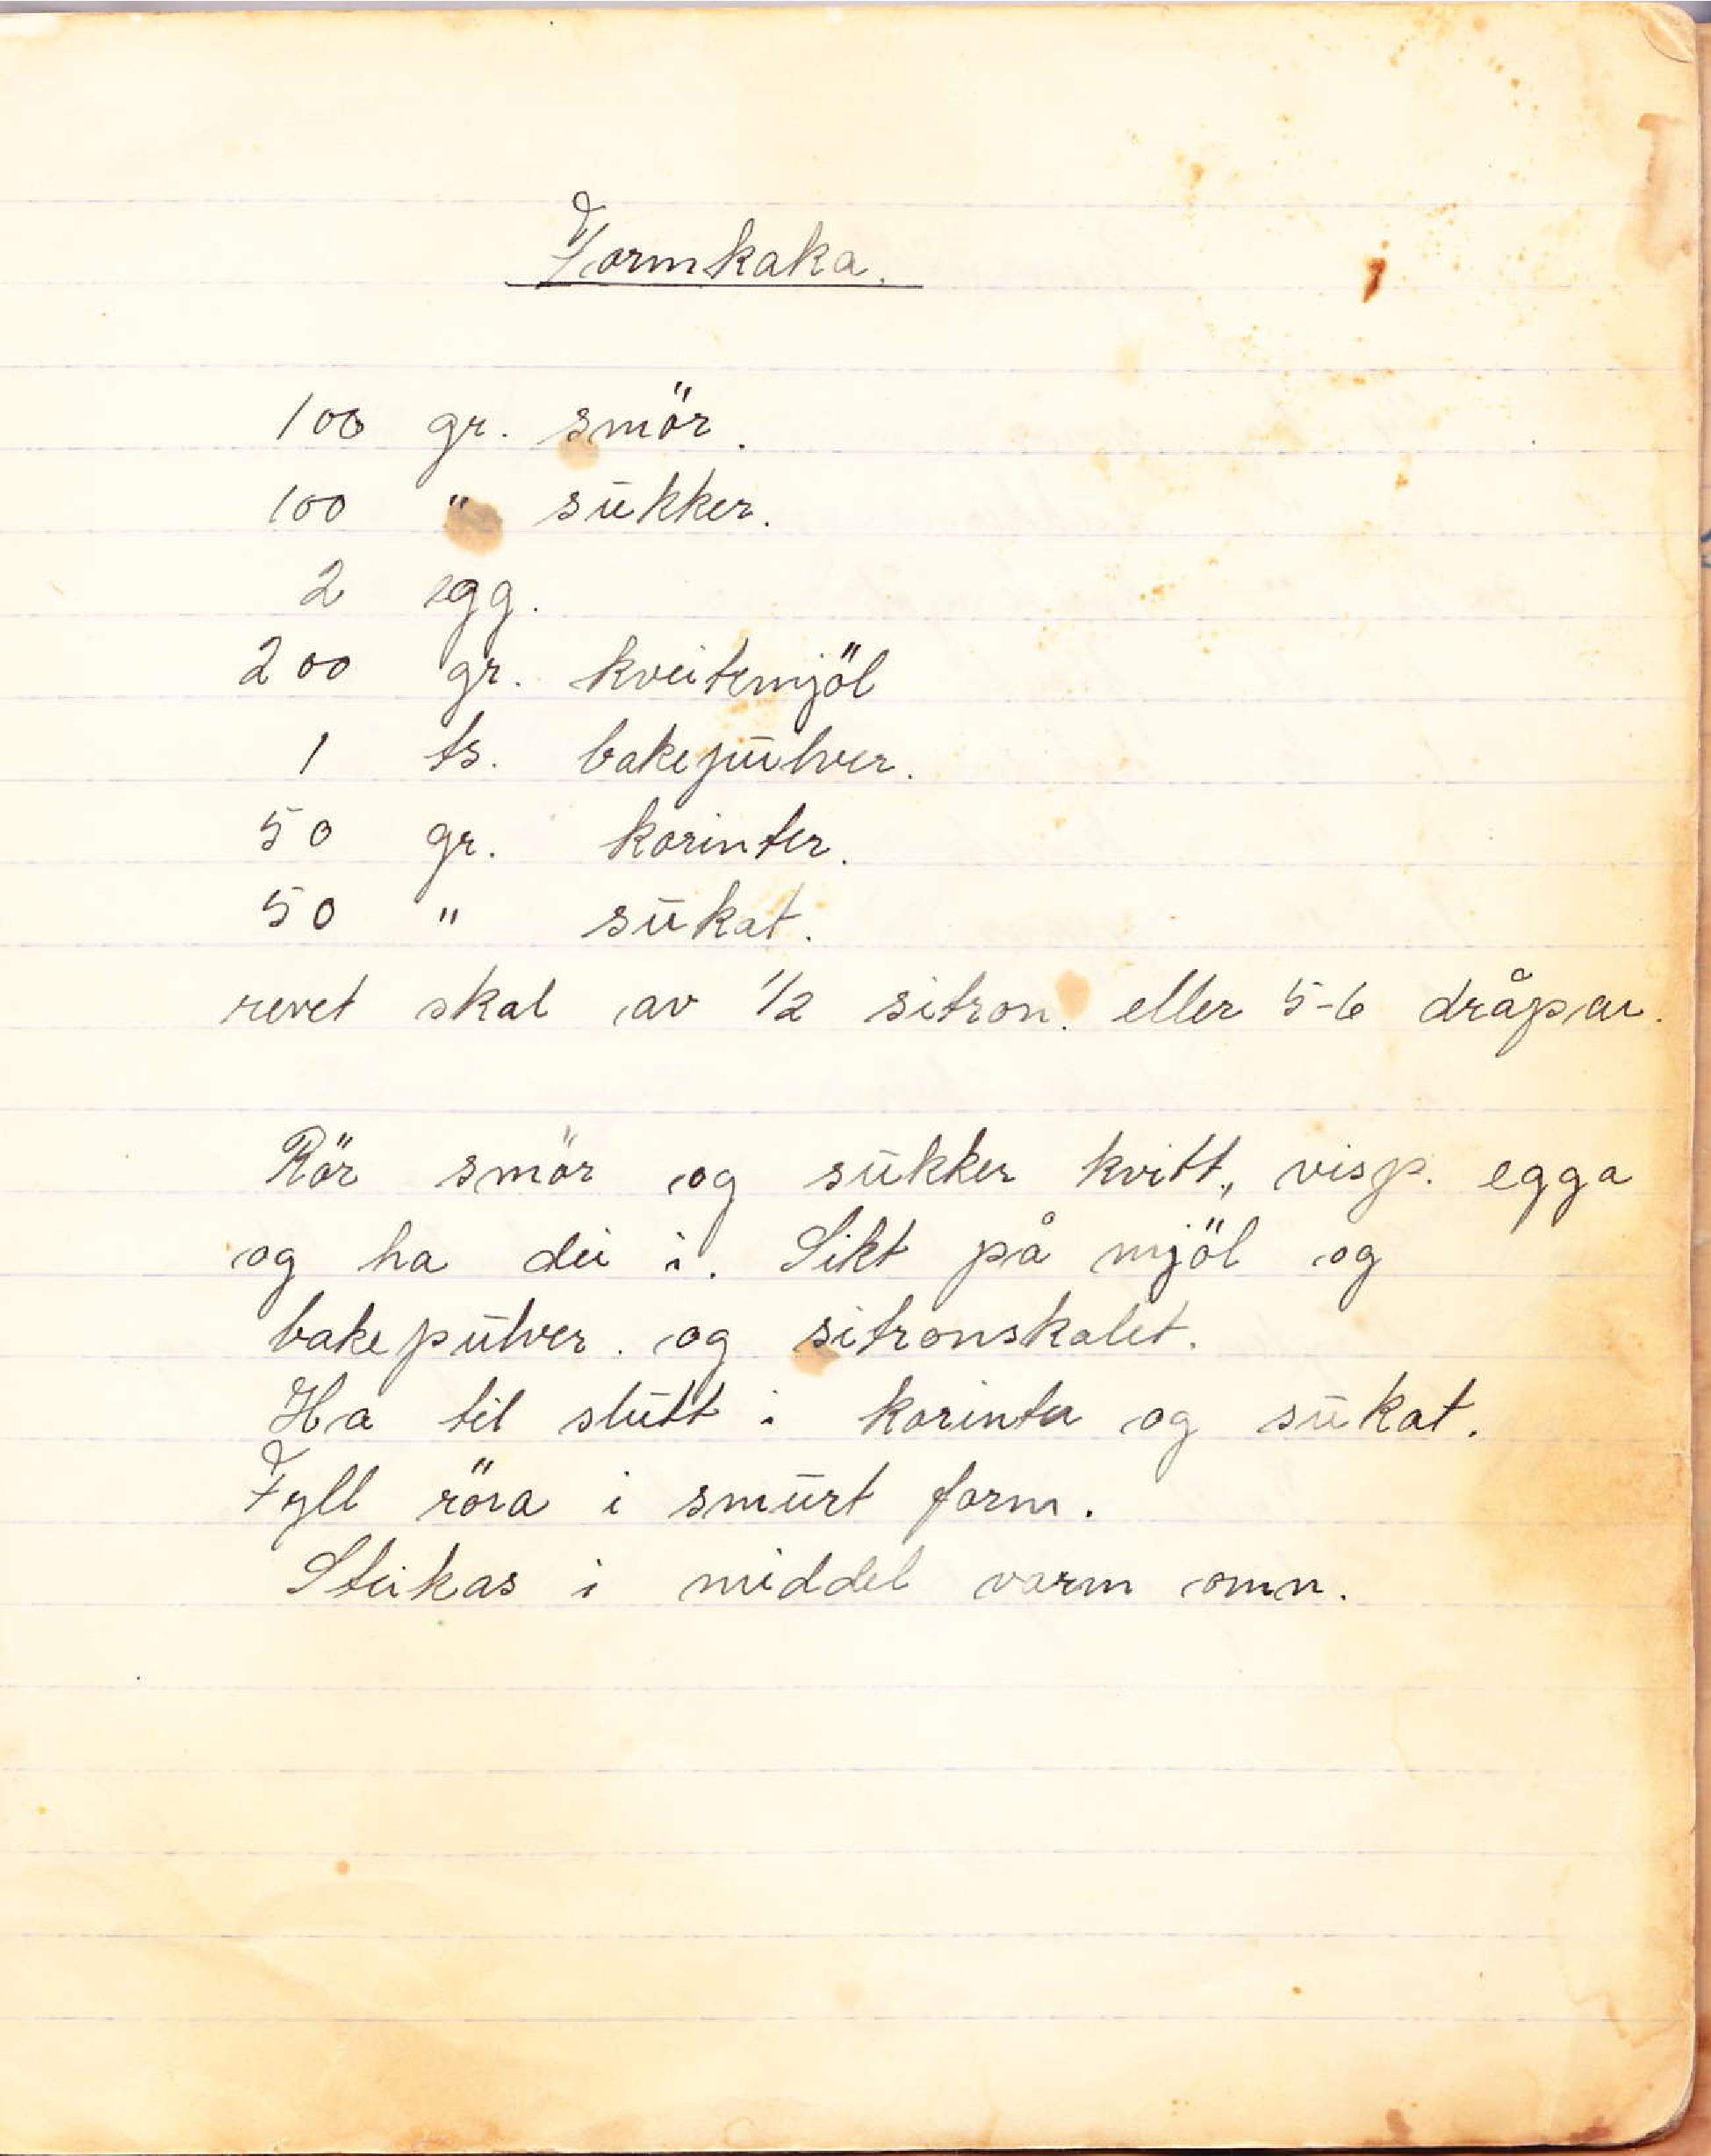 Formkaka.
100 gr. smör.
100 " sūkker.
2 egg.
200 gr. kveitemjöl
1 ts. bakepūlver.
50 gr. korinter.
50 " sūkat.
revet skal av 1/2 sitron. eller 5-6 dråpar.
Rör smör og sūkker kvitt, visp. egga
og ha dei i. Sikt på mjöl og
bakepūlver. og sitronskalet.
Ha til slūtt i korinter og sūkat.
Fyll röra i smūrt form.
Steikas i middel varm omn.